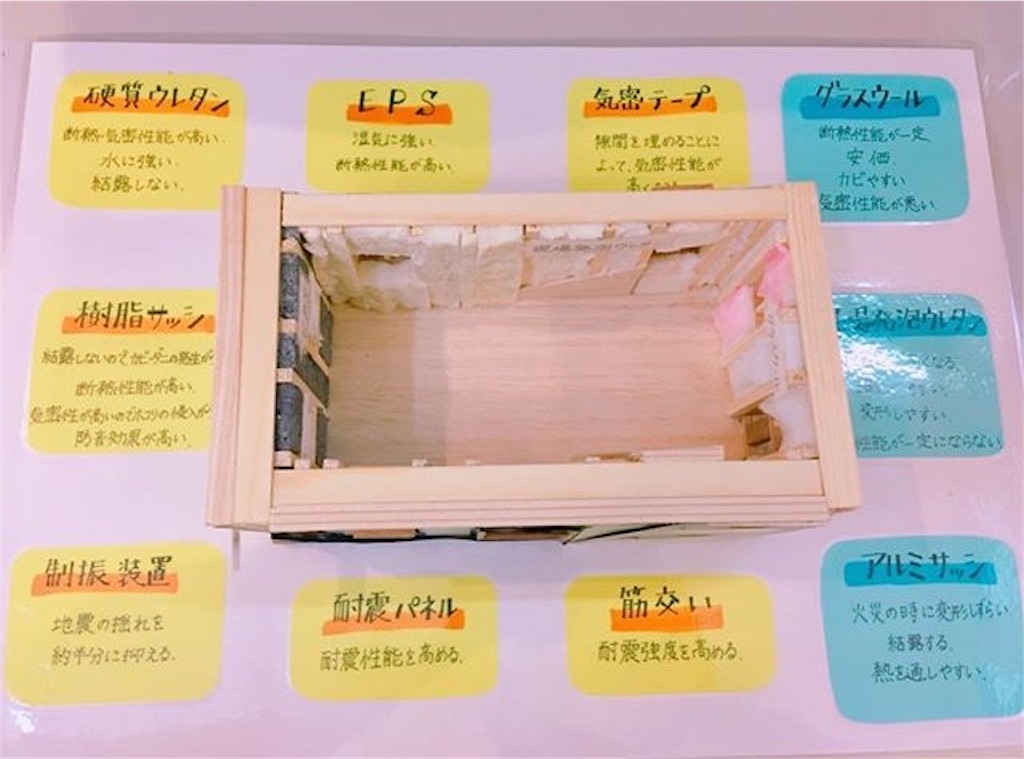 硬質ウレタン
断熱・気密性能が高い.
水に強い.
結露しない.
EPS
湿気に強い.
断熱性能が高い.
気密テープ
隙間を埋めることに
よって、気密性能が
高く
グラスウール
断熱性能が一定.
安価.
カビやすい
気密性能が悪い.
樹脂サッシ
結露しないのでカビ・ダニの発生が
断熱性能が高い.
気密性が高いのでホコリの侵入が
防音効果が高い.
発泡ウレタン
くなる.
変形しやすい.
性能が一定にならない
制振装置
地震の揺れを
約半分に抑える.
耐震パネル
耐震性能を高める.
筋交い
耐震強度を高める.
アルミサッシ
火災の時に変形しずらい
結露する.
熱を通しやすい.